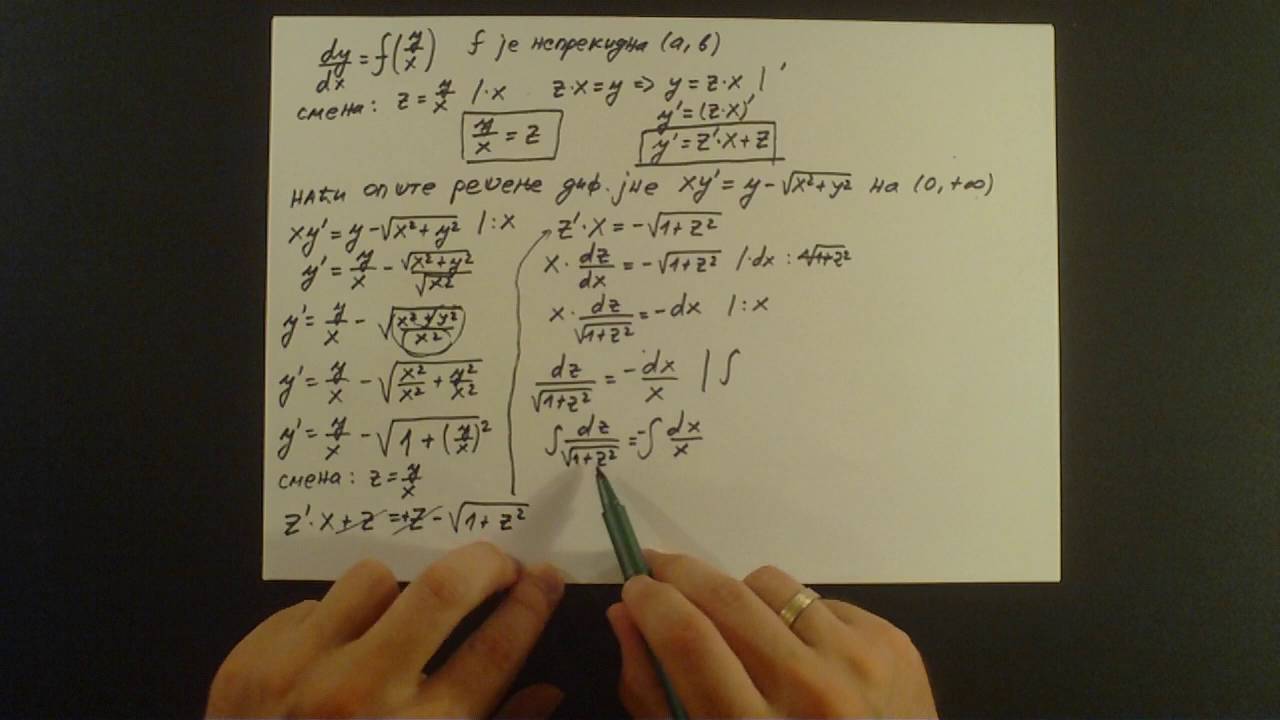 dy/dx = f(y/x) f је непрекидна (a, b)
смена: z = y/x /·x z·x = y => y = z·x /'
y' = (z·x)'
y/x = z y' = z'·x + z
наћи опште решење диф. јне xy' = y - √(x²+y²) на (0, +∞)
xy' = y - √(x²+y²) /:x
y' = y/x - √(x²+y²)/√(x²)
y' = y/x - √((x²+y²)/x²)
y' = y/x - √(x²/x² + y²/x²)
y' = y/x - √(1 + (y/x)²)
смена: z = y/x
z'·x + z = +z - √(1+z²)
z'·x = -√(1+z²)
x·dz/dx = -√(1+z²) /·dx :√(1+z²)
x·dz/√(1+z²) = -dx /:x
dz/√(1+z²) = -dx/x /∫
∫dz/√(1+z²) = -∫dx/x